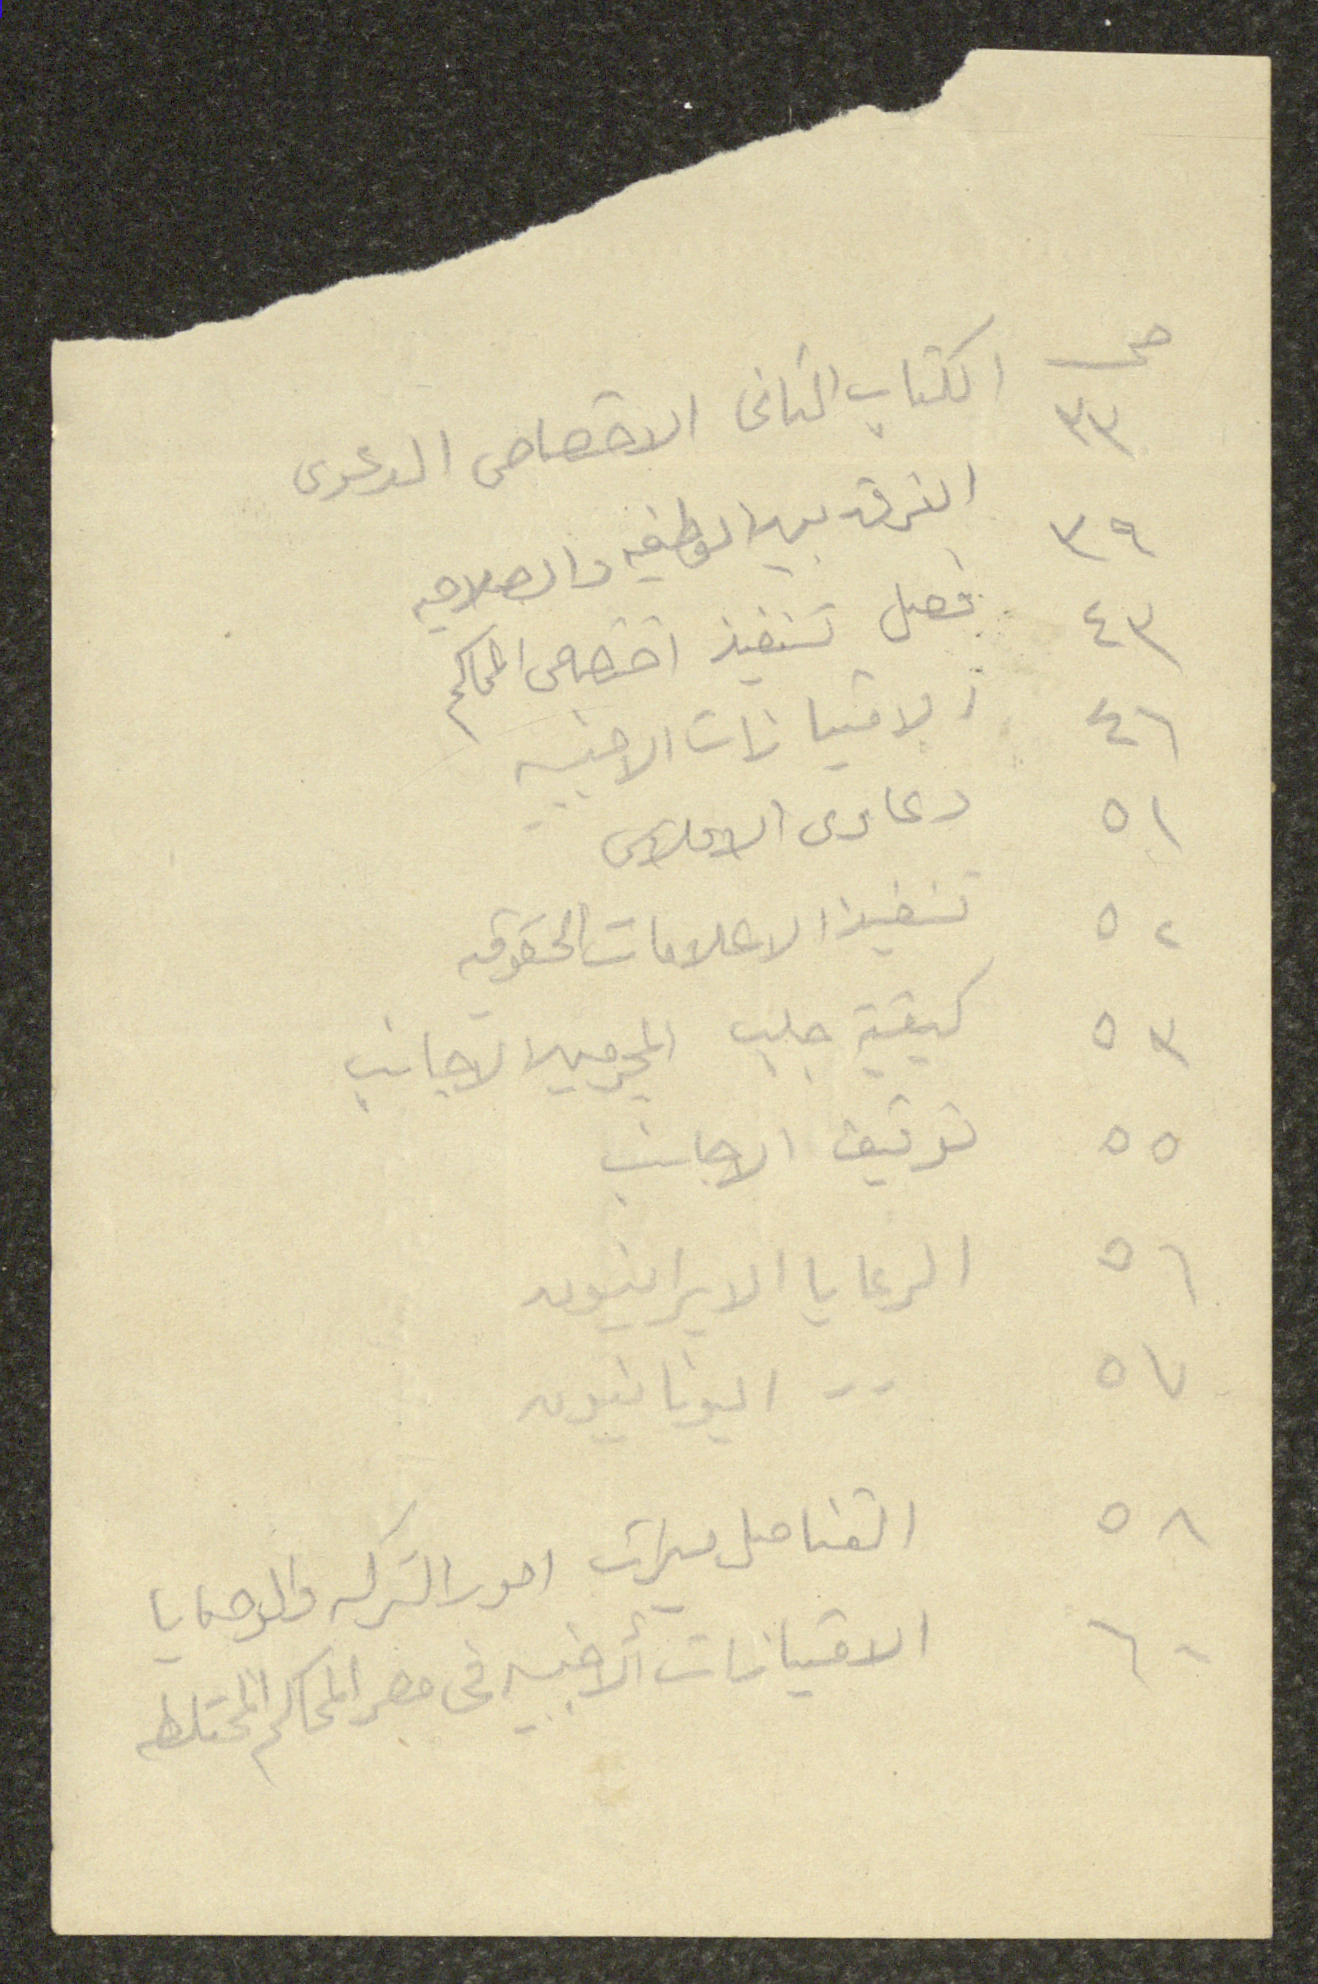 صح
٣٣ الكتاب الثانى الاختصاص الدعوى
٣٩ الفرق بين الوظيفه والصلاحيه
٤٣ فصل تنفيذ اختصاص المحاكم
٤٦ الامتيازات الاجنبيه
٥١ دعاوى الافلاس
٥٢ تنفيذ الاعلامات الحقوقيه
٥٣ كيفية جلب المجرمين الاجانب
٥٥ توقيف الاجانب
٥٦ الرعايا الايرانيون
٥٧ -- اليونانيون
٥٨ القناصل ميراث امور التركه والوصايا
٦٠ الامتيازات الاجنبيه فى مصر المحاكم المختلطه